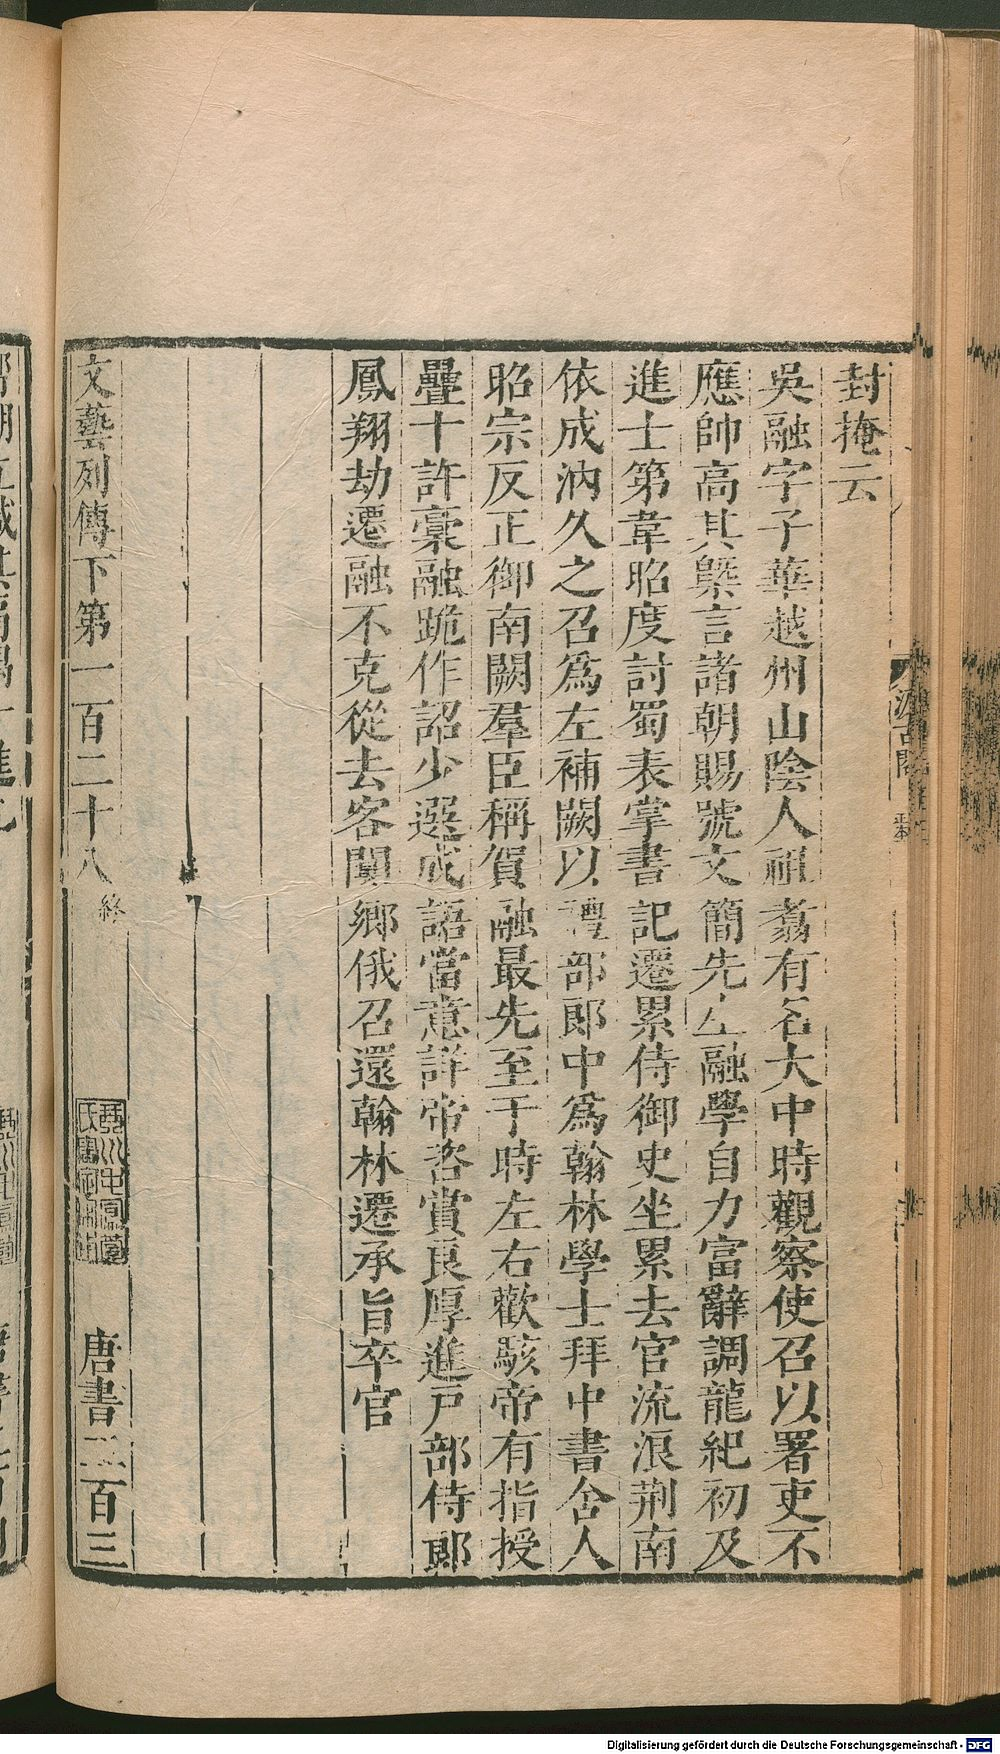 封掩云
吳融字子華越州山陰人祖翥有名大中時觀察使召以署吏不
應帥高其槩言諸朝賜號文簡先生融學自力富辭調龍紀初及
進士第韋昭度討蜀表掌書記遷累侍御史坐累去官流浪荆南
依成汭久之召爲左補闕以禮部郎中爲翰林學士拜中書舍人
昭宗反正御南闕羣臣稱賀融最先至于時左右歡駭帝有指授
疊十許稾融跪作詔少選成語當意詳帝咨賞良厚進戸部侍郎
鳳翔劫遷融不克從去客閿鄉俄召還翰林遷承旨卒官
文藝列傳下第一百二十八終
唐書二百三
汲古閣
Digitalisierung gefördert durch die Deutsche Forschungsgemeinschaft - DFG